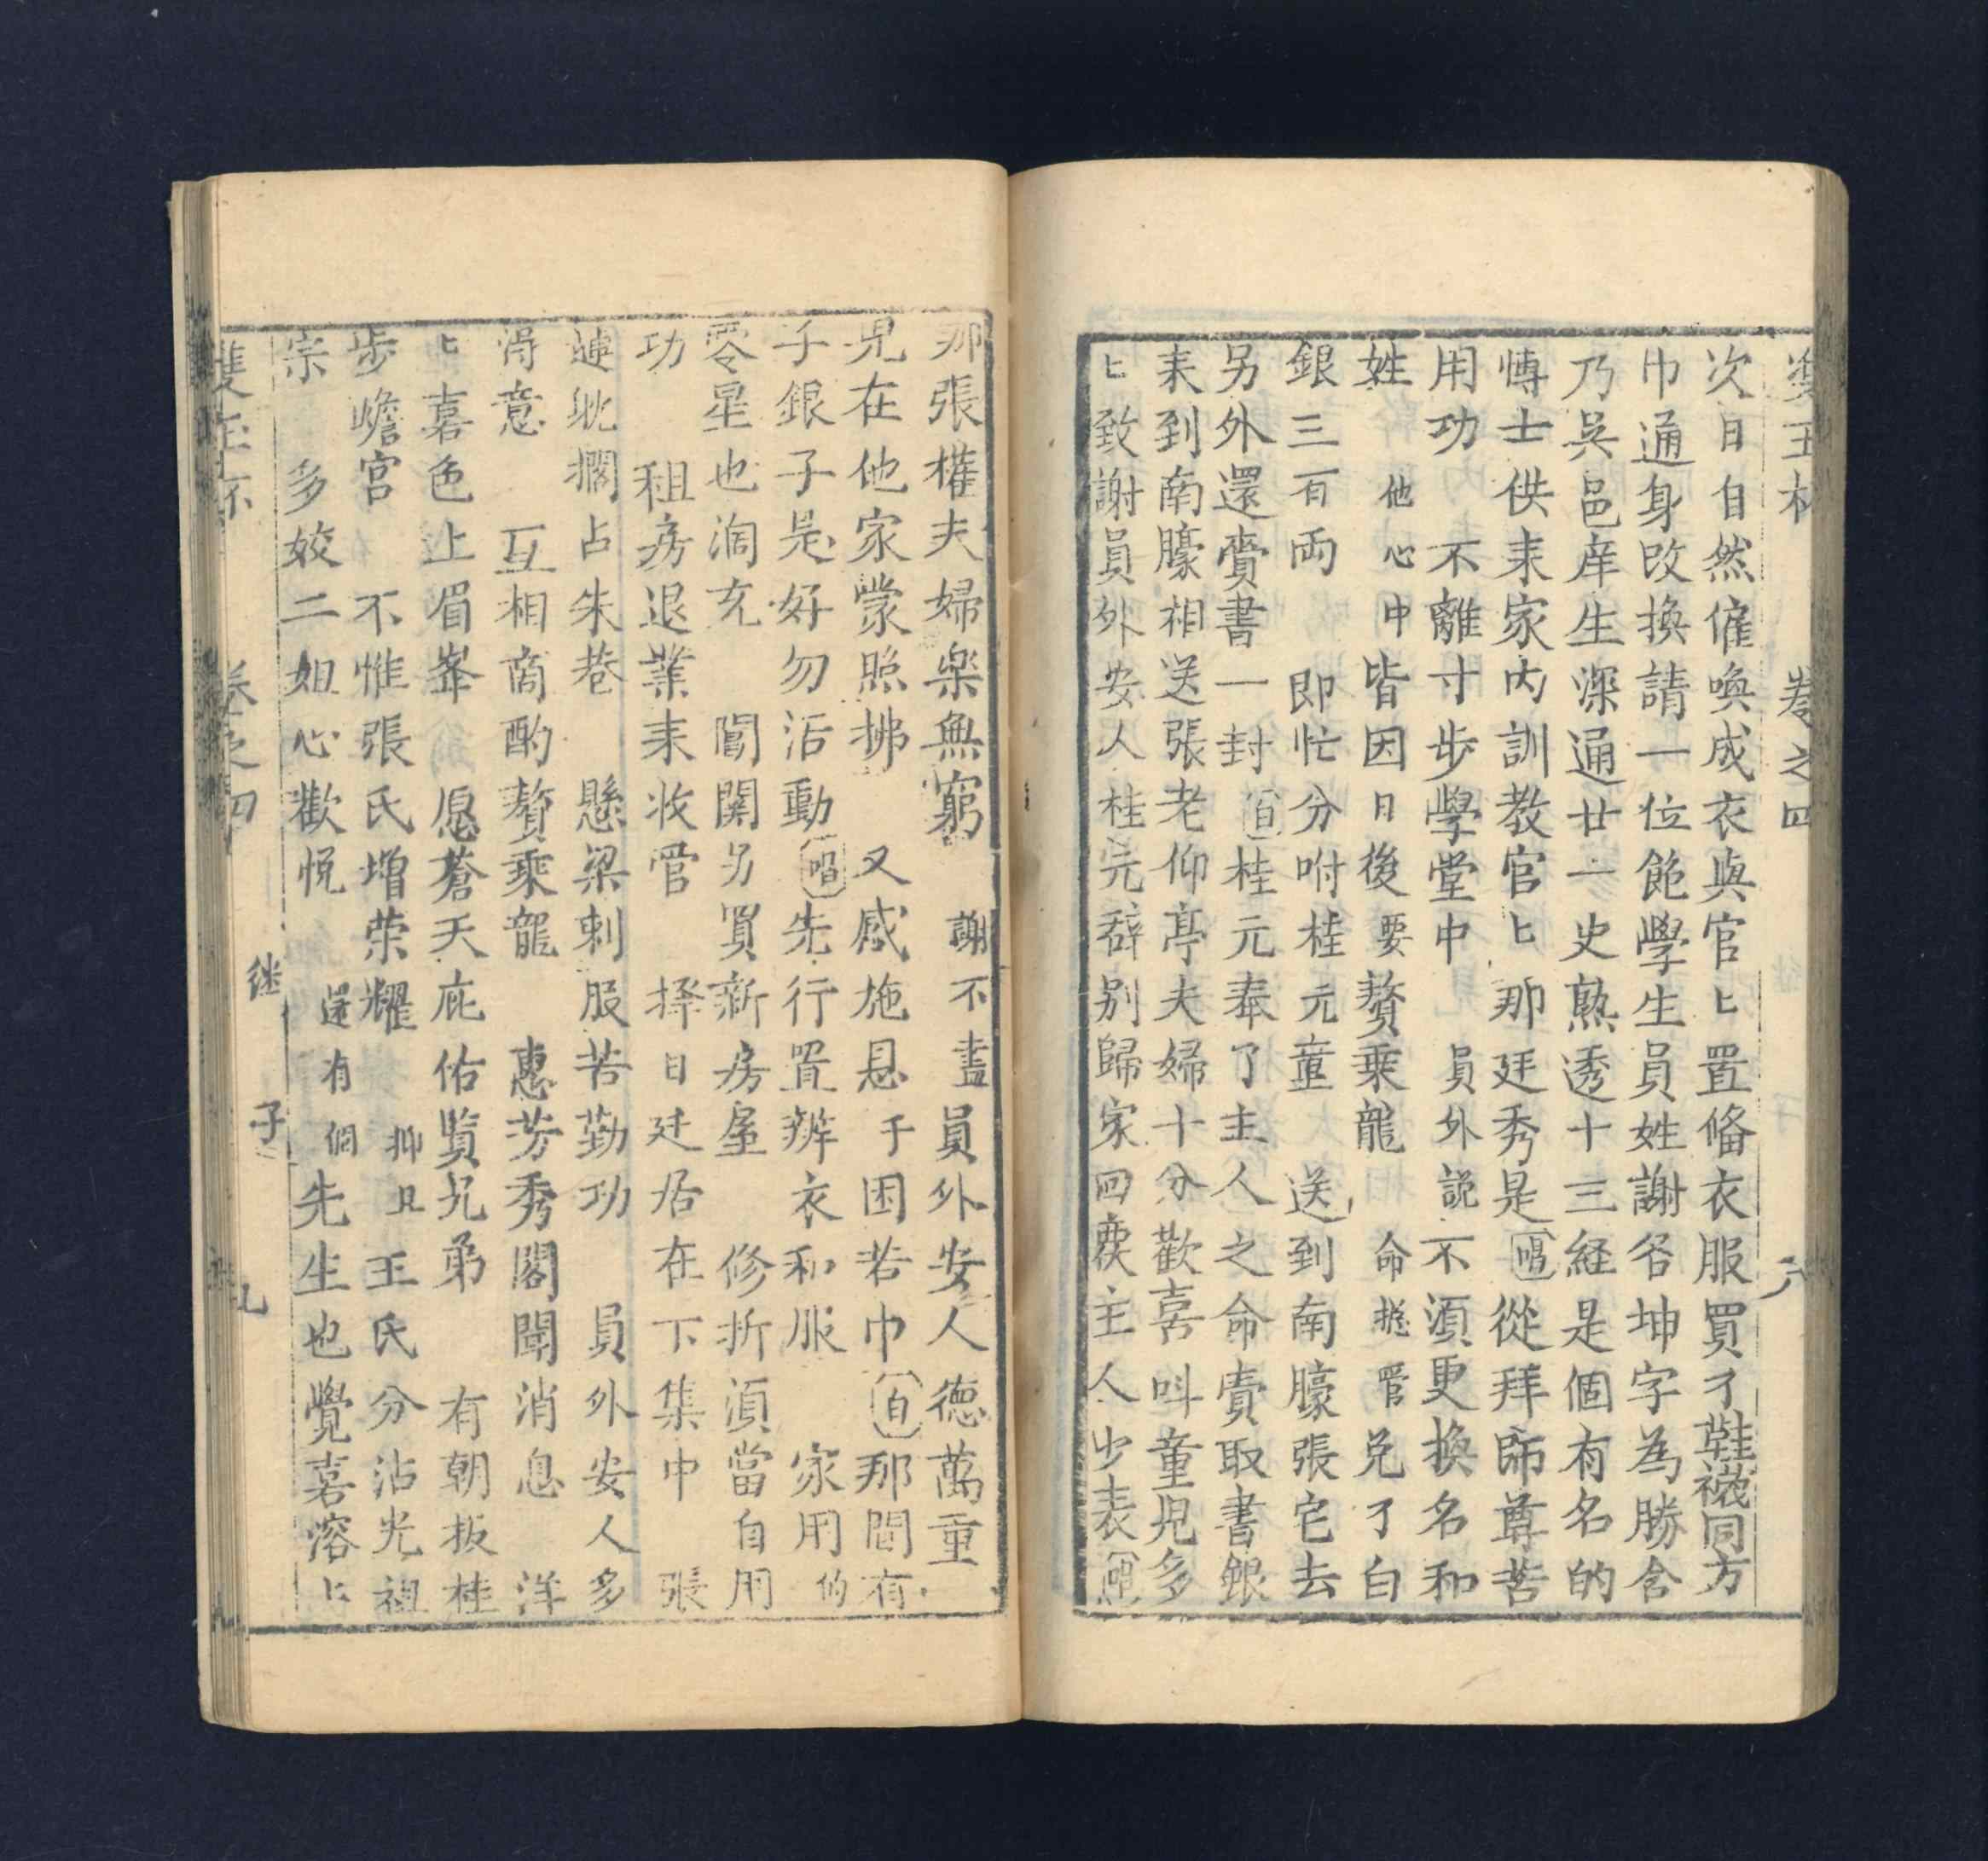 卷之四
次日自然催喚成衣與官匕置俻衣服買了鞋襪同方
巾通身改換請一位飽學生員姓謝名坤字為勝含
乃吳邑庠生深通廿一史熟透十三経是個有名的
博士供耒家內訓教官匕那廷秀是唱從拜師尊苦
用功 不離寸步學堂中 員外説不湏更換名和
姓 他心中皆因日後要贅乗龍 命揔管兑了白
銀三百両 即忙分咐桂元童 送到南濠張宅去
另外還賫書一封白桂元奉了主人之命賫取書銀
耒到南濠相送張老仰亭夫婦十分歡喜呌童児多
匕致謝員外安人桂元辞别歸家回覆主人少表唱
那張權夫婦樂無窮 謝不盡員外安人德萬重
児在他家蒙照拂 又感施恩于困若巾白那間有
子銀子是好勿活動唱先行置辦衣和服 家用的
零星也涸充 閶闗另買新房屋 修折湏當自用
功 租房退業耒收管 择日廷居在下集中 張
璉耽擱占朱巷 懸梁刺股苦勤功 員外安人多
淂意 互相商酌贅乗龍 惠芳秀閣聞消息 洋
匕嘉色上眉峯 愿蒼天庇佑賢兄弟 有朝扳桂
步蟾宫 不惟張氏增荣耀 抑且王氏分沾光祖
宗 多姣二姐心歡悦 還有個先生也覺喜溶匕
雙玉杯 卷之四 継 子 九